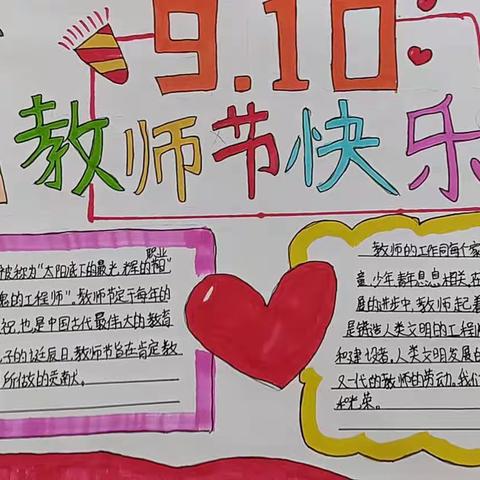 9.10
教师节快乐
被称为"太阳底下的最光辉的职业"
的工程师".教师节定于每年的
祝.也是中国古代最伟大的教育
子的诞辰日.教师节旨在肯定教
所做的贡献。
教师的工作同每个家
童.少年.青年息息相关.在
展的进步中.教师起着
是铸造人类文明的工程师
和建设者.人类文明发展的
又一代的教师的劳动.我们
和光荣。